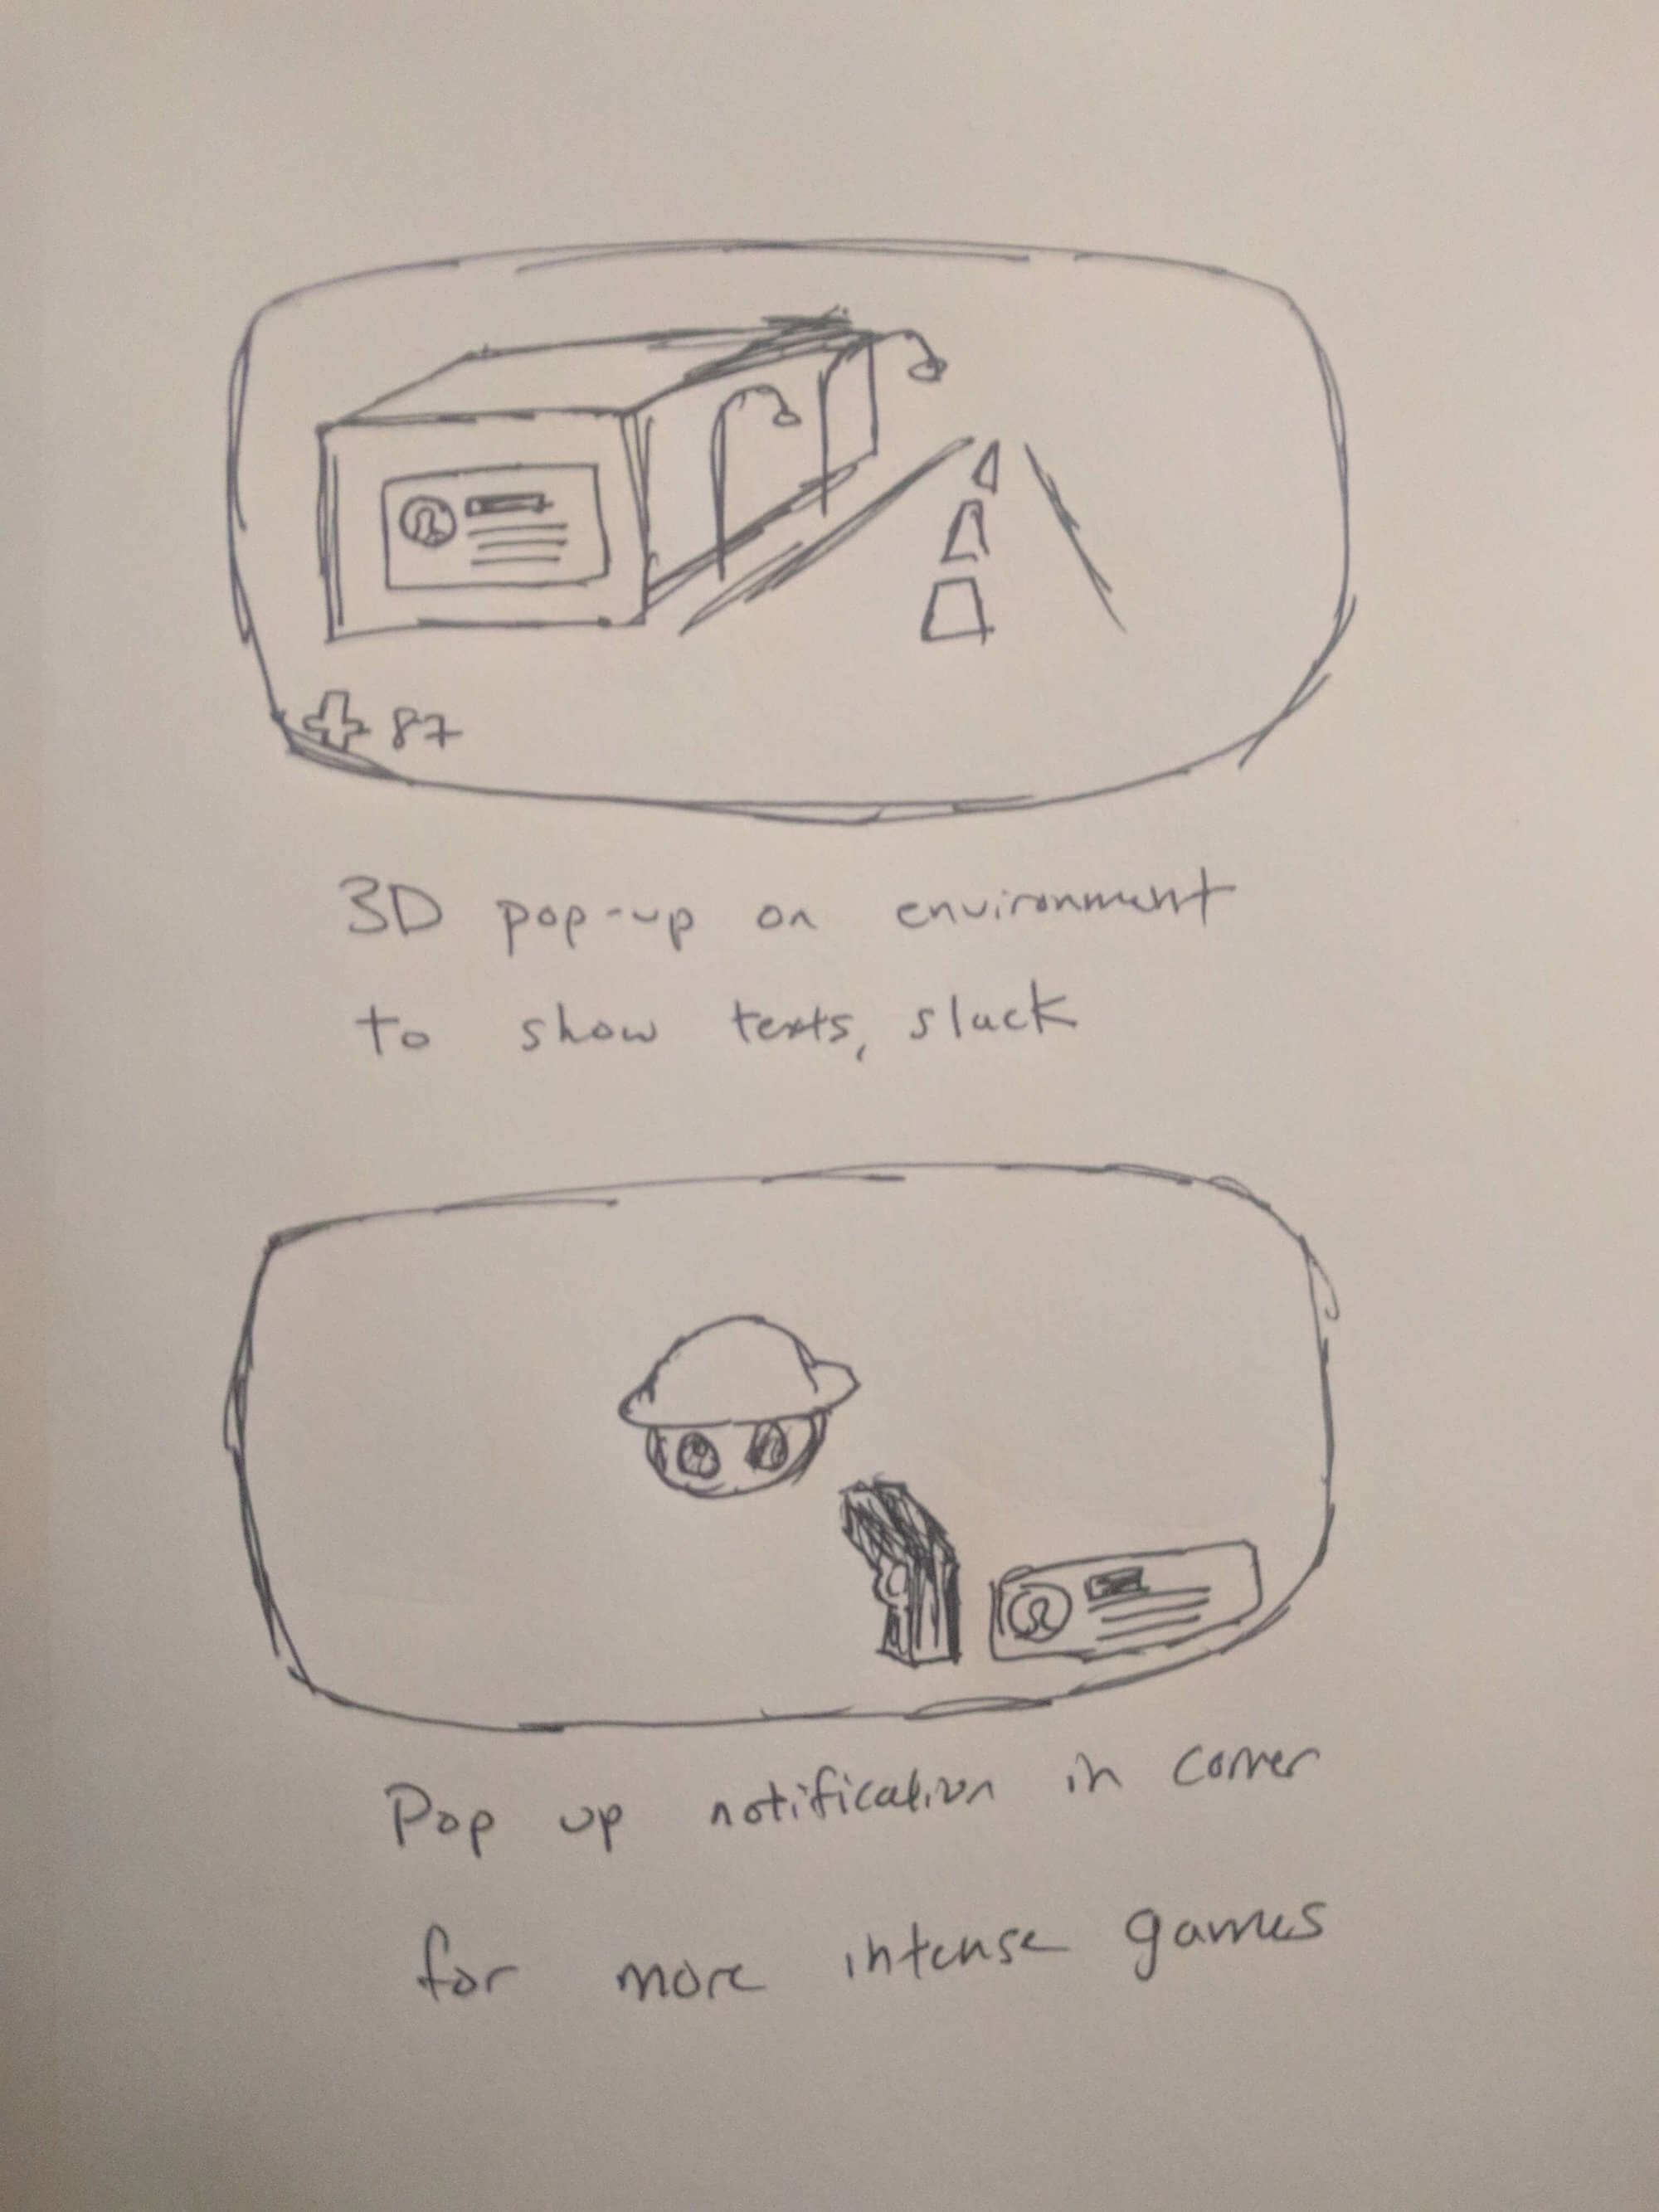 87
3D pop-up on environment
to show texts, slack
Pop up notification in corner
for more intense games